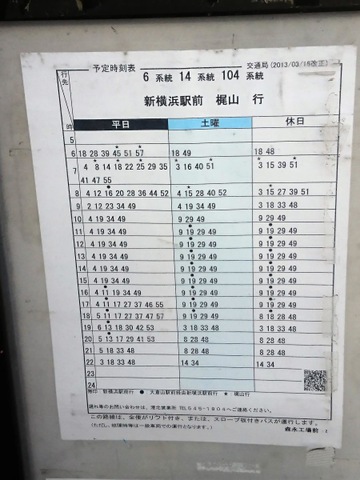 予定時刻表 交通局(2013/03/16改正)
6 系統 14 系統 104 系統
新横浜駅前 梶山 行
行先 時 平日 土曜 休日
5
6 18 28 39 45 51 57 18 49 18 48
7 4 8 14 18 22 25 29 35 3 16 40 51 3 15 39 51
41 47 55
8 4 12 16 20 28 36 44 52 4 15 28 40 52 3 15 27 39 51
9 2 12 23 34 49 9 19 29 49 3 18 33 48
10 4 19 34 49 9 29 49 9 29 49
11 4 19 34 49 9 19 29 49 9 19 29 49
12 4 19 34 49 9 19 29 49 9 19 29 49
13 4 19 34 49 9 19 29 49 9 19 29 49
14 4 19 34 49 9 19 29 49 9 19 29 49
15 4 19 34 49 9 19 29 49 9 19 29 49
16 4 11 19 34 49 9 19 29 49 9 19 29 49
17 4 11 17 27 37 46 55 9 19 29 49 9 19 29 49
18 5 11 17 27 37 47 57 9 19 29 49 8 18 28 48
19 6 13 18 30 42 53 3 18 33 48 3 18 33 48
20 5 13 17 29 41 53 8 28 48 8 28 48
21 5 18 33 48 8 28 48 8 28 48
22 3 18 33 48 14 34 14 34
23
24
無印 新横浜駅前行 ● 大倉山駅前経由新横浜駅前行 ★ 梶山行
遅れ等のお問い合わせは、港北営業所 TEL545-1804へご連絡ください。
この路線は、全便がリフト付き、または、スロープ板付きバスが運行します。
森永工場前